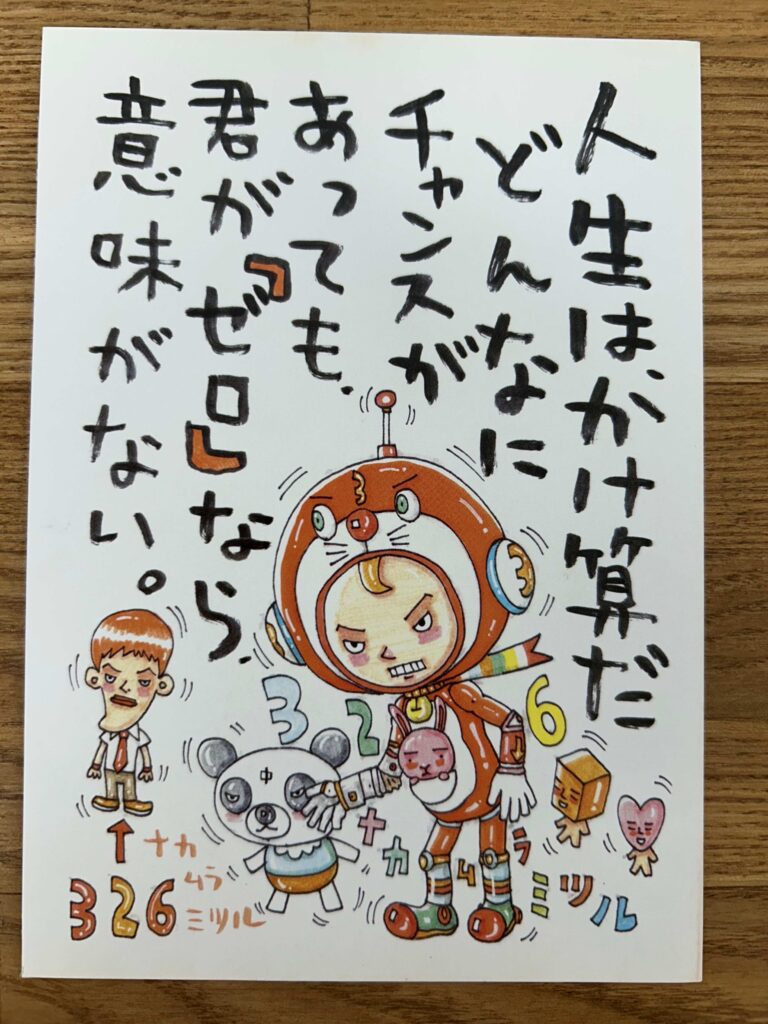 人生は、かけ算だ
どんなに
チャンスが
あっても、
君が『ゼロ』なら、
意味がない。
3
3
3 2 6
中
ナカムラ
ミツル
ナカ
ムラ
326 ミツル